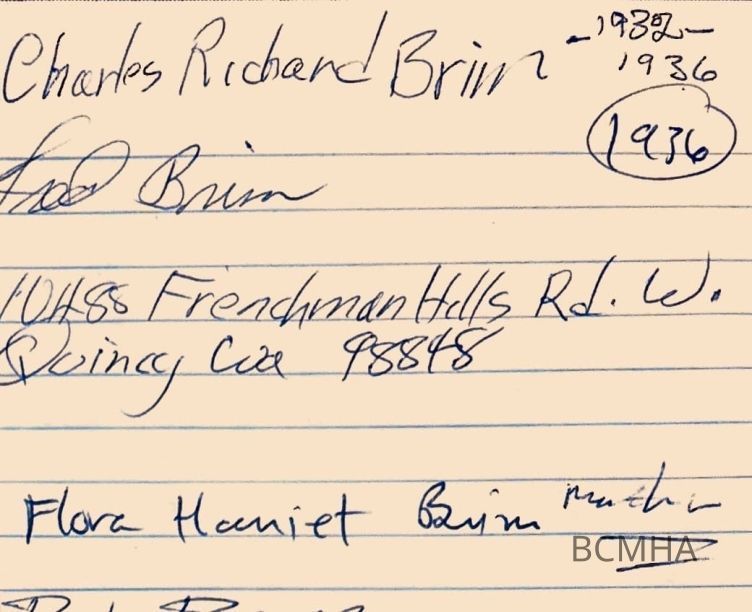 Charles Richard Brim -1932-
1936
1936
Fred Brim
10488 Frenchman Hills Rd. W.
Quincy Wa 98848
Flora Harriet Brim Mother
BCMHA